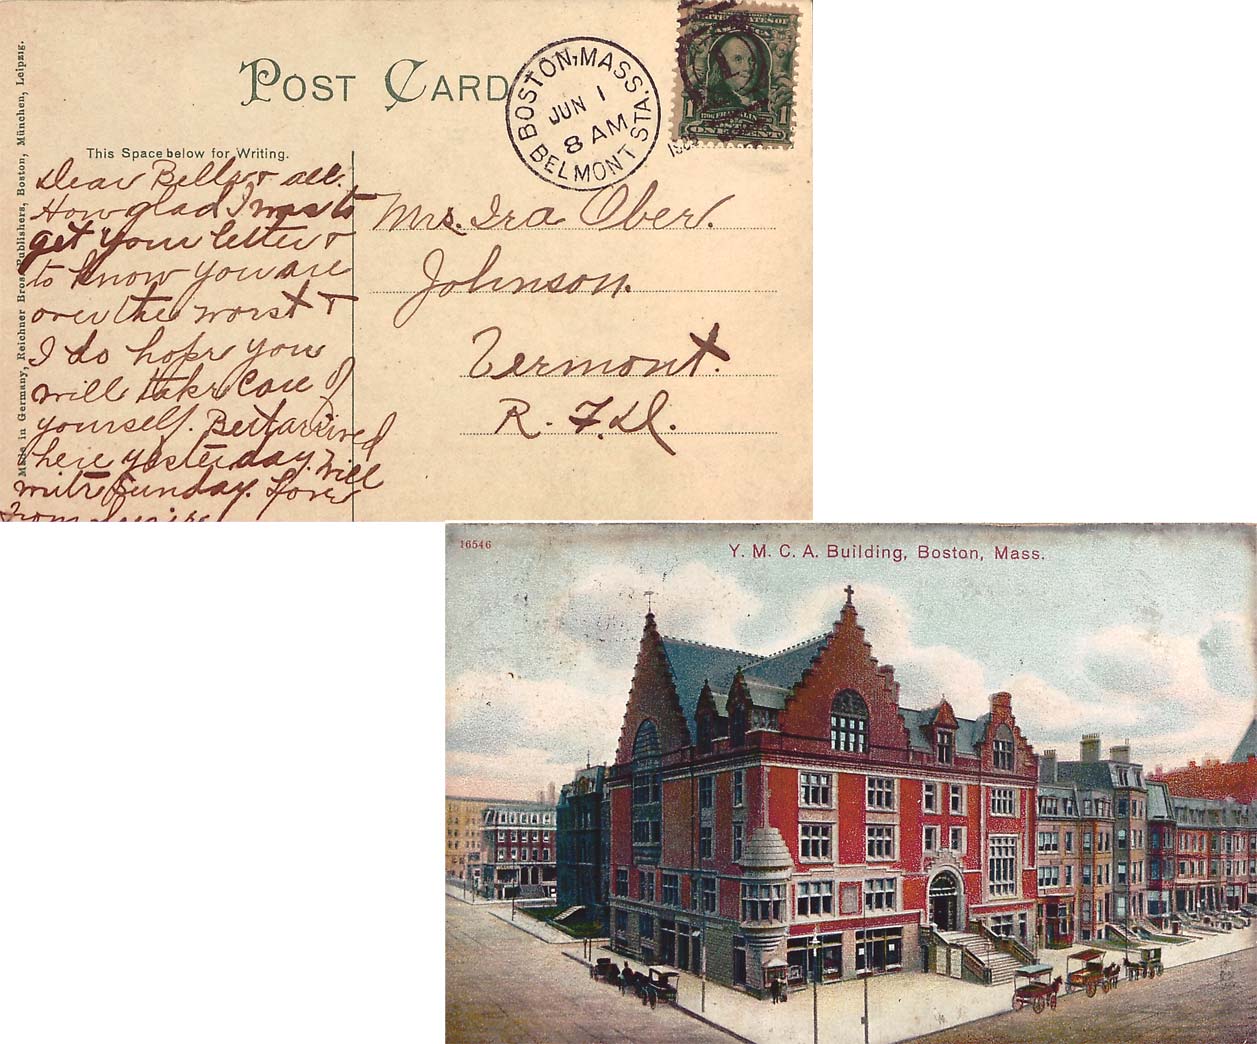 POST CARD
BOSTON, MASS.
JUN 1
8 AM
BELMONT STA.
UNITED STATES OF
AMERICA
1 FRANKLIN 1
ONE CENT
This Space below for Writing.
Made in Germany, Reichner Bros. Publishers, Boston, München, Leipzig.
Dear Bella & all.
How glad I was to
get your letter &
to know you are
over the worst &
I do hope you
will take care of
yourself. Bert arrived
here yesterday. Will
write Sunday. Love
from
Mrs. Ira Ober.
Johnson.
Vermont.
R.F.D.
16546
Y. M. C. A. Building, Boston, Mass.